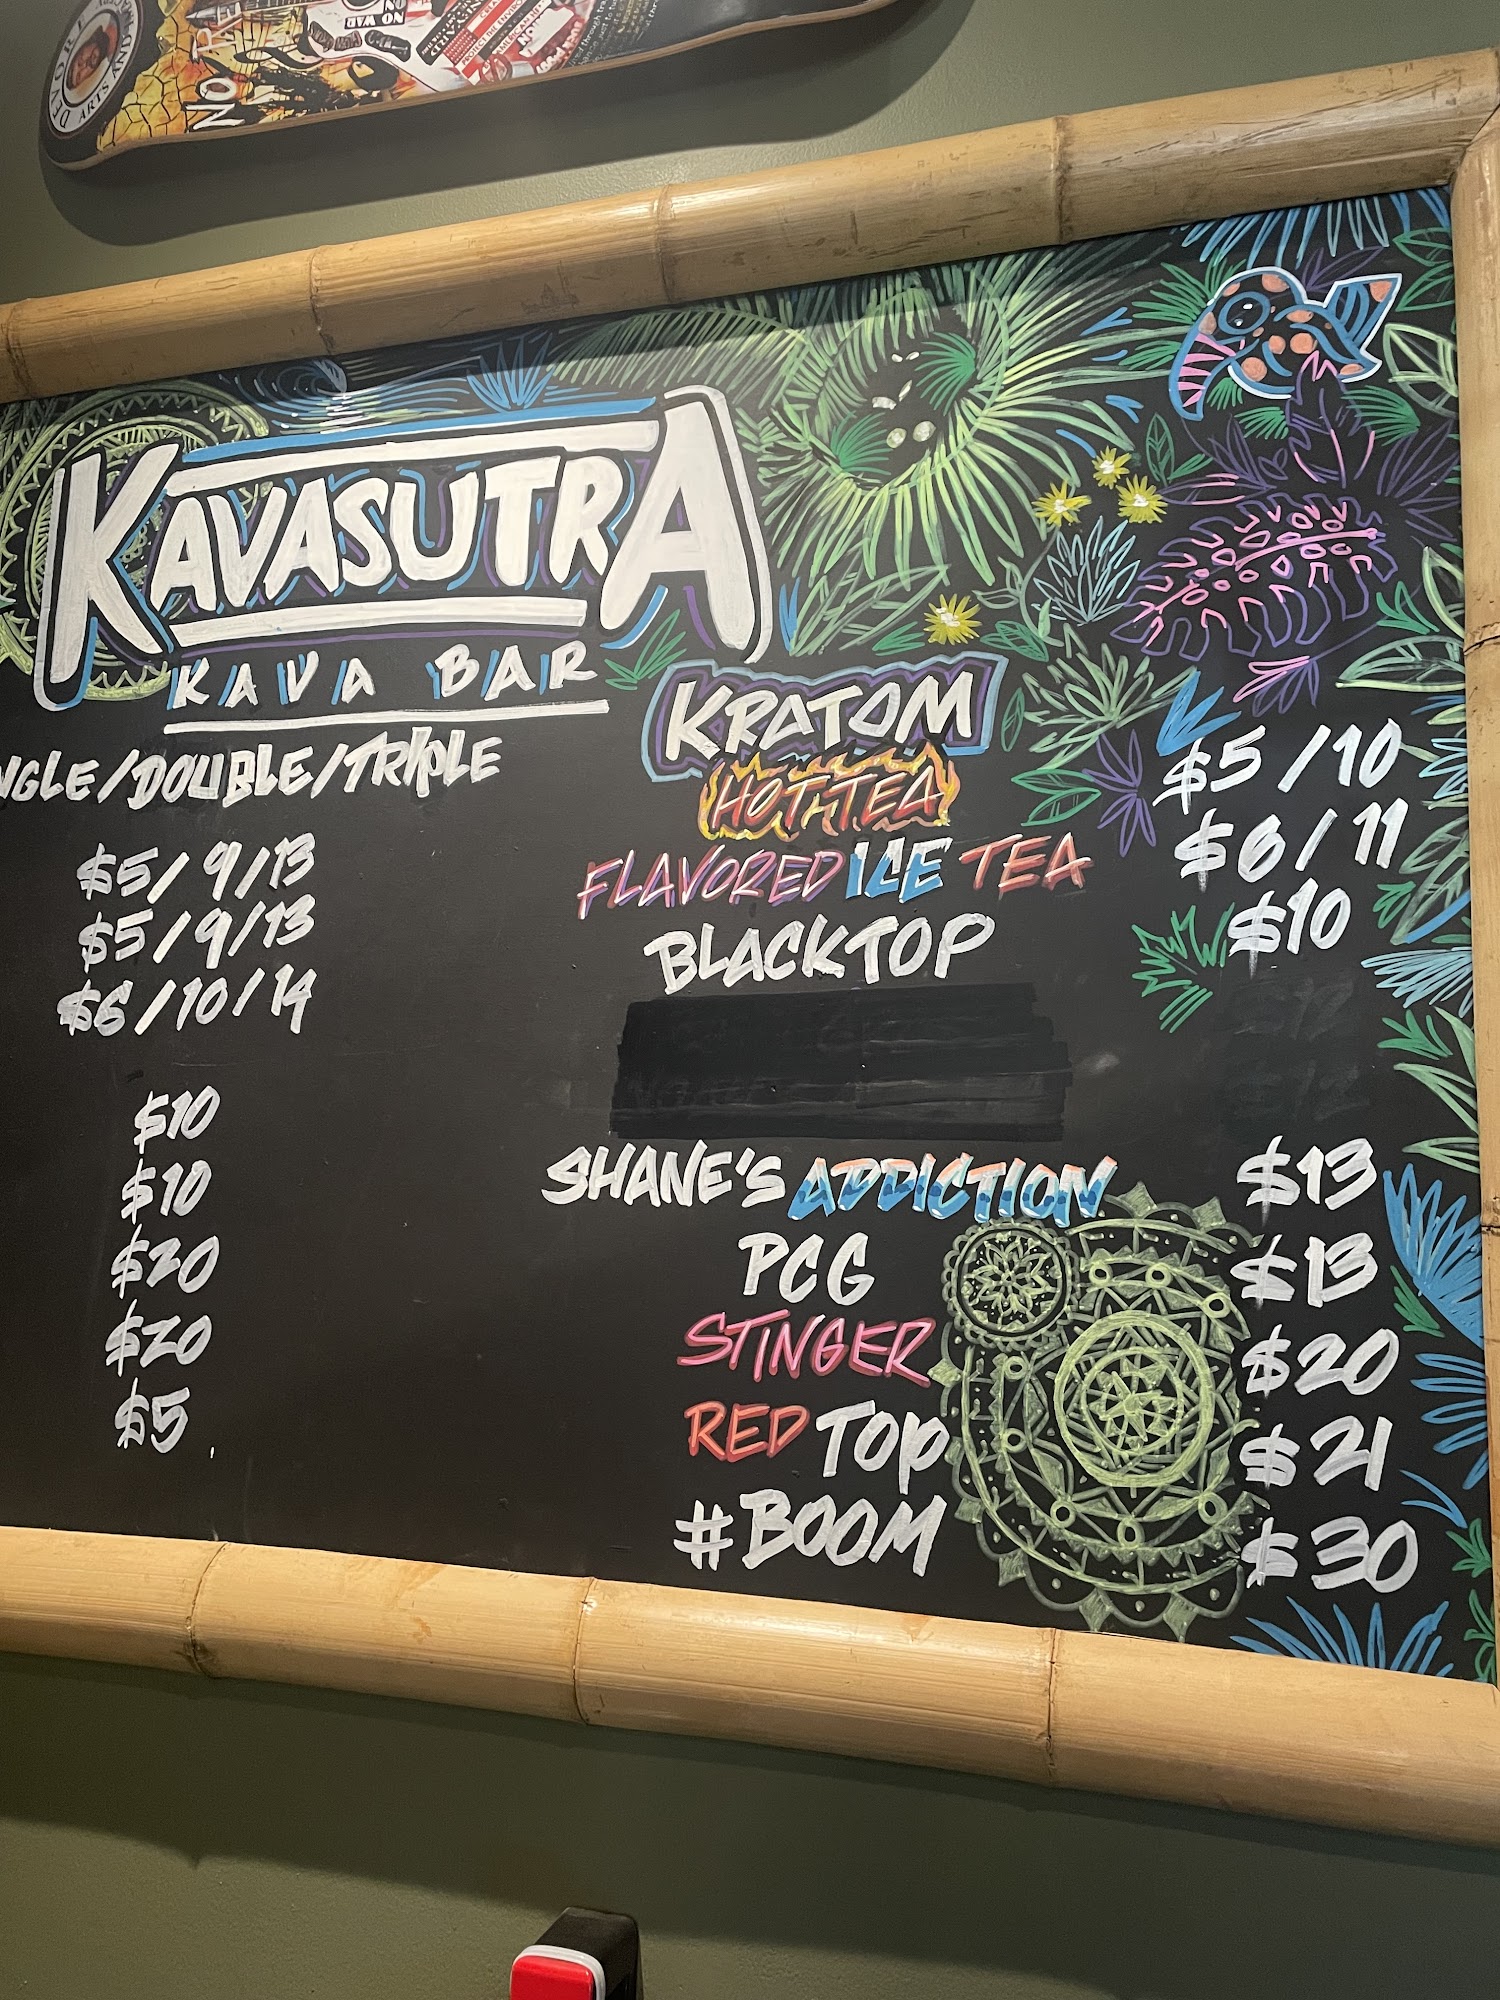 NO
NO WAR
PROTECT THE ENVIRO
AMERICAN RE
DEVORE
ARTS AND
KAVASUTRA
KAVA BAR
NGLE/DOUBLE/TRIPLE
$5/9/13
$5/9/13
$6/10/14
$10
$10
$20
$20
$5
KRATOM
HOT TEA $5/10
FLAVORED ICE TEA $6/11
BLACKTOP $10
SHANE'S ADDICTION $13
PCG $13
STINGER $20
RED TOP $21
#BOOM $30